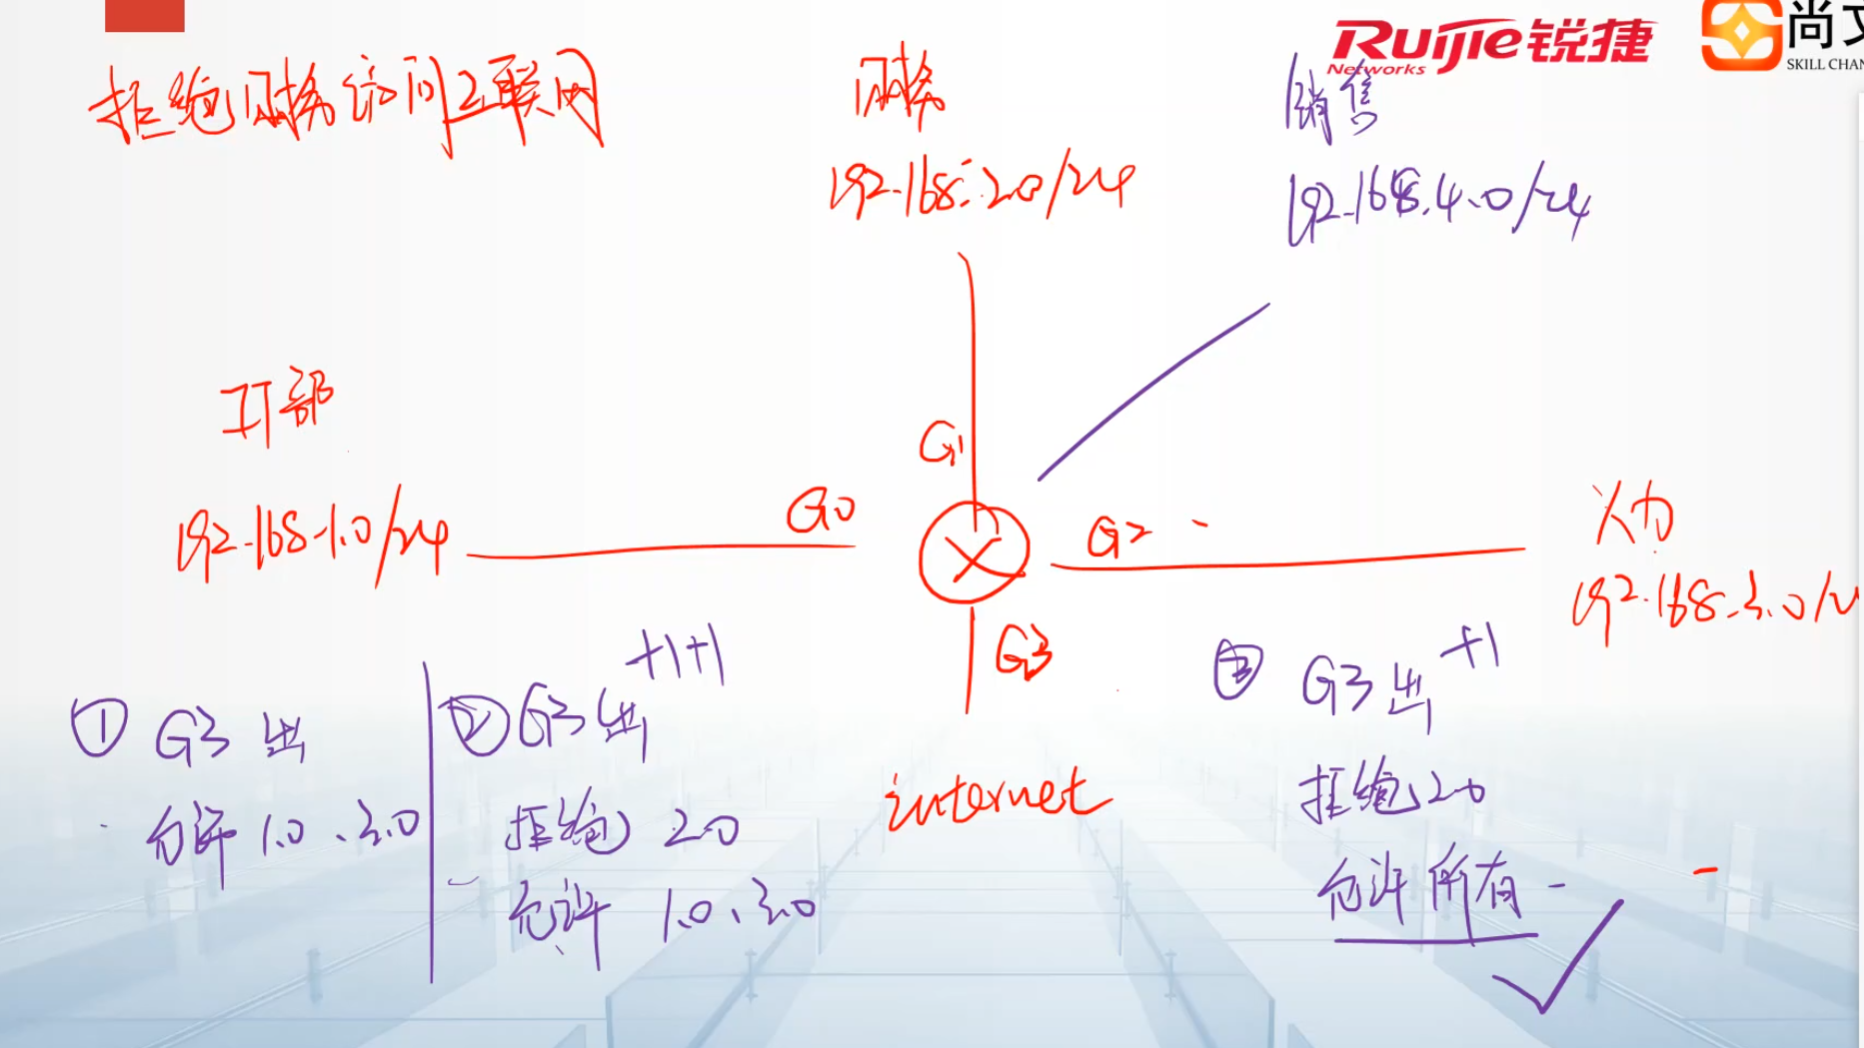 Ruijie锐捷
Networks
尚文
SKILL CHAN
拒绝财务访问互联网
财务
192.168.2.0/24
销售
192.168.4.0/24
IT部
192.168.1.0/24
G0
G1
G2
G3
人力
192.168.3.0/2
internet
① G3出
允许 1.0、3.0
② G3出 +1+1
拒绝 2.0
允许 1.0、3.0
③ G3出 +1
拒绝 2.0
允许所有